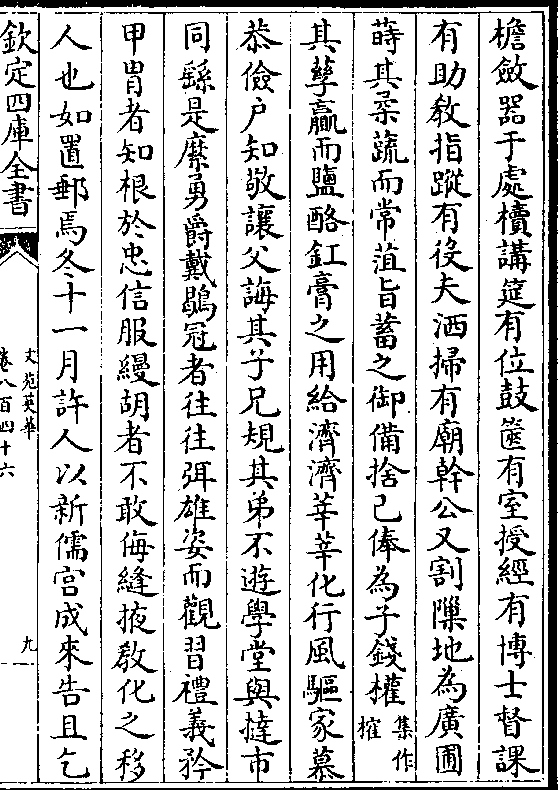 檐斂器于處櫝講筵有位鼓篋有室授經有博士督課
有助敎指蹤有役夫洒掃有廟幹公又割隟地為廣圃
蒔其柔蔬而常葅旨蓄之御備捨己俸為子錢權集作榷
其孳羸而鹽酪釭膏之用給濟濟莘莘化行風驅家慕
恭儉户知敬讓父誨其子兄規其弟不遊學堂與撻市
同繇是縻勇爵戴鶡冠者往往弭雄姿而觀習禮義矜
甲胄者知根於忠信服縵胡者不敢侮縫掖敎化之移
人也如置郵焉冬十一月許人以新儒宫成來告且乞
欽定四庫全書
文苑英華
卷八百四十六
九